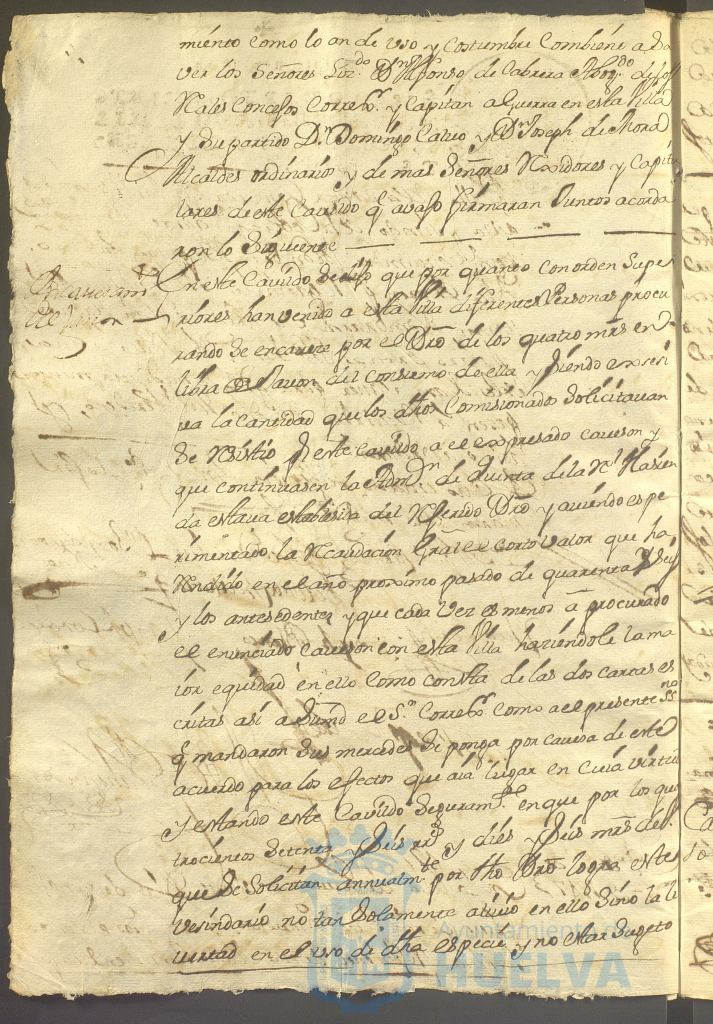 miento como lo an de uso y costumbre combiene a sa
ver los Señores Lizdo. Dn. Alfonso de Cabrera Abogdo. de los
Rales Consejos Corregor. y Capitan a Guerra en esta Villa
y su partido Dn. Domingo Calvo y Dn. Joseph de Mora
Alcaldes ordinarios y demas Señores Rexidores y Capitu
lares de este Cavildo q avajo firmaran Juntos acorda
ron lo Siguiente
Encavezamto.
del Javon
En este Cavildo se dijo que por quanto con orden supe
riores han venido a esta Villa diferentes Personas procu
rando se encaveze por el Dro. de los quatro mrs en
libra de Javon del consumo de ella y siendo exsesi
va la cantidad que los dhos Comisionados Solicitavan
se Resistio Pr. este cavildo a el expresado caveson y
que continuasen la Admon. de quenta de la Rl. Hasien
da estava establesida del Referido Dro. y aviendo espe
rimentado la Recaudacion Gral el corto valor que ha
Rendido en el año proximo pasado de quarenta y seis
y los antesedentes y que cada vez es menos a procurado
el enunciado caveson con esta Villa haziendole la ma
ior equidad en ello como consta de las dos cartas es
critas asi a su md el Sr. Corregor. como a el presente ssno.
q mandaron sus mercedes se ponga por caveza de este
acuerdo para los efectos que aia lugar en cuia virtud
y estando este Cavildo seguramte. en que por los qua
trocientos setenta y seis rrs. y dies y seis mrs. de Vn.
que se solicitan annualmte. por dho Dro. logra este
vesindario no tan solamente alivio en ello sino la li
vertad en el uso de dha especie y no estar sugeto
Ayuntamiento de
HUELVA